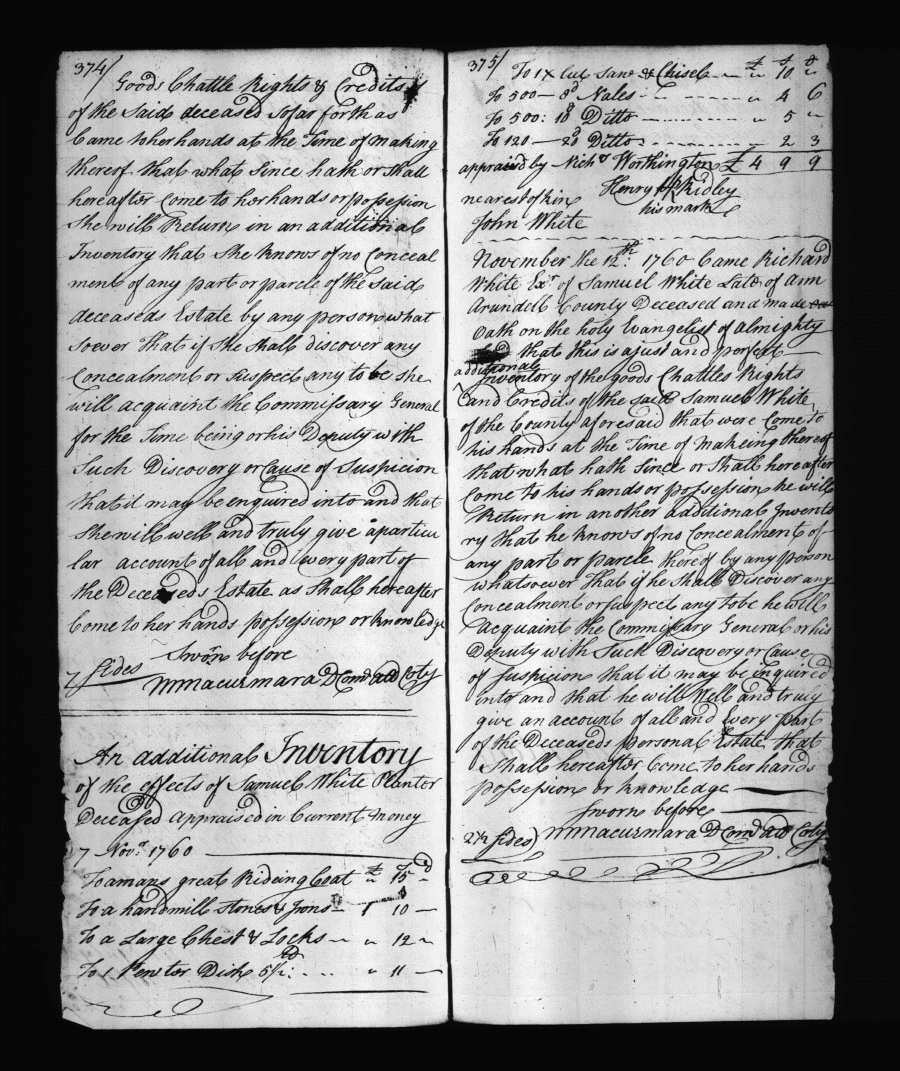 374/
Goods Chattle Rights & Credits of
of the Said deceased So far forth as
Came to her hands at the Time of making
thereof that what Since hath or Shall
hereafter Come to her hands or possession
She will Return in an additional
Inventory that She knows of no Conceal
ment of any part or parcle of the Said
deceaseds Estate by any person what
soever that if She Shall discover any
Concealment or Suspect any to be She
will acquaint the Commissary General
for the Time being or his Deputy with
Such Discovery or Cause of Suspicion
that it may be enquired into and that
She will well and truly give a particu
lar account of all and Every part of
the Deceaseds Estate as Shall hereafter
Come to her hands possession or knowledge
Sworn before
7 Sides Mmacusmara D Com AA Coty
An additional Inventory
of the effects of Samuel White Planter
Deceased Appraised in Current money
7 Novr. 1760
To a mans great Rideing Coat £ " 15 " d
To a handmill Stones & Irons 1 10 —
To a Large Chest & Locks " 12 "
To 1 Pewter Dish 5 1/2 lb: " 11 —
375/
To 1 X Cut Saw & Chisel £ " S 10 d "
To 500 — 8d Nales " 4 6
To 500: 10d Ditto " 5 "
To 120 — 20d Ditto 2 3
appraised by Nichs Worthington £ 4 9 9
Henry Ridley
nearest of kin his mark
John White
November the 12th: 1760 Came Richard
White Exr of Samuel White Late of Ann
Arundell County Deceased and made
Oath on the holy Evangelist of almighty
that this is a just and perfect
additional
Inventory of the goods Chattles Rights
and Credits of the said Samuel White
of the County aforesaid that were Come to
his hands at the Time of Makeing thereof
that what hath Since or Shall hereafter
Come to his hands or possession he will
Return in another additional Invento
ry that he knows of no Concealment of
any part or parcle thereof by any person
whatsoever that if he Shall Discover any
Concealment or suspect any to be he will
Acquaint the Commissary General or his
Deputy with Such Discovery or Cause
of suspicion that it may be inquired
into and that he will Well and truly
give an account of all and Every Part
of the Deceaseds personal Estate that
Shall hereafter Come to her hands
possession or knowledge
Sworn before
2 1/2 Sides) Mmacusmara D Com AA Coty